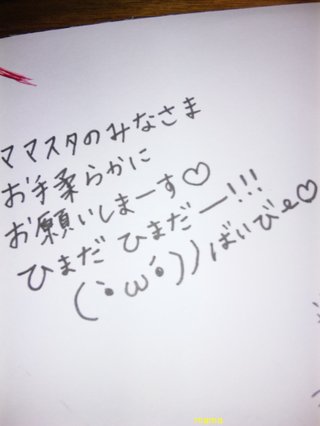 ママスタのみなさま
お手柔らかに
お願いしまーす♡
ひまだ ひまだー!!!
(`・ω・´)), ばいびe♡
mama